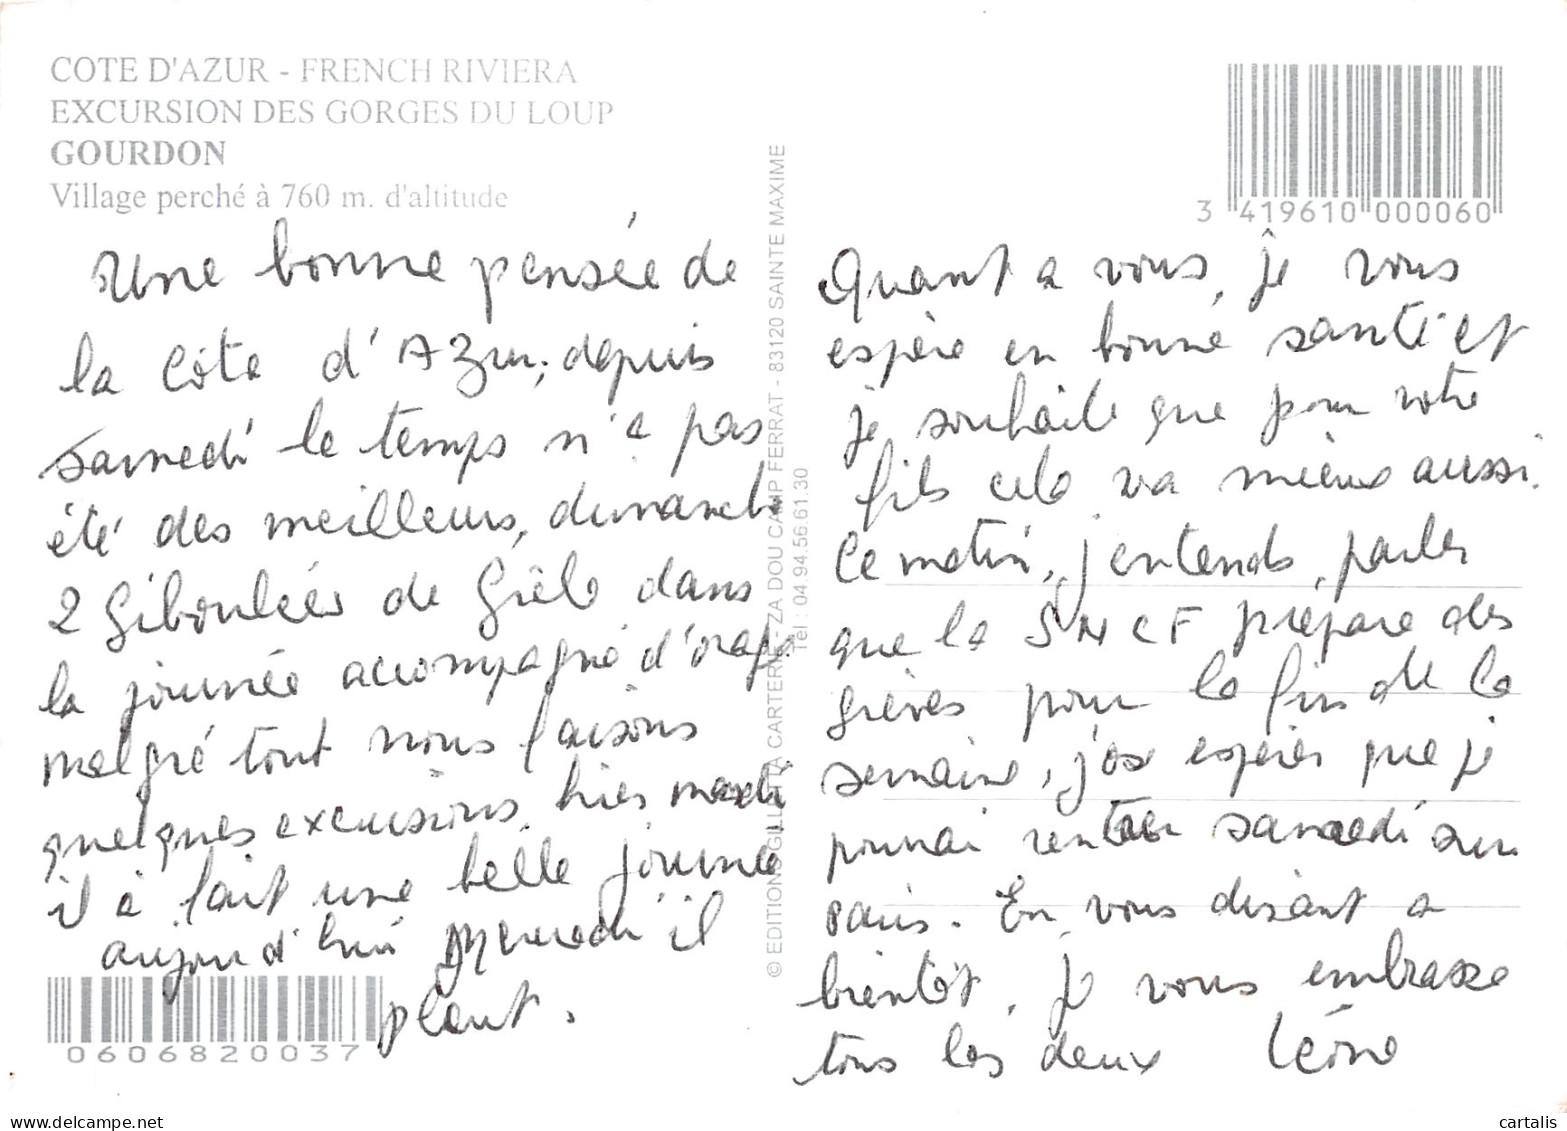 COTE D'AZUR - FRENCH RIVIERA
EXCURSION DES GORGES DU LOUP
GOURDON
Village perché à 760 m. d'altitude
3 419610 000060
Une bonne pensée de
la Côte d'Azur, depuis
samedi le temps n'a pas
été des meilleurs, dimanche
2 Giboulées de Grêle dans
la journée accompagné d'orage
malgré tout nous faisons
quelques excursions, hier mardi
il à fait une belle journée
aujourd'hui Mercredi il
pleut.
0606820037
© EDITIONS GILLETTA CARTERIE - ZA DOU CAMP FERRAT - 83120 SAINTE MAXIME
Tél : 04.94.56.61.30
Quant a vous, je vous
espère en bonne santé et
je souhaite que pour votre
fils cela va mieux aussi.
Ce matin, j'entends, parler
que la SNCF prépare des
grèves pour la fin de la
semaine, j'ose espérer que je
pourrai rentrer samedi sur
Paris. En vous disant a
bientôt, je vous embrasse
tous les deux Léone
www.delcampe.net
cartalis